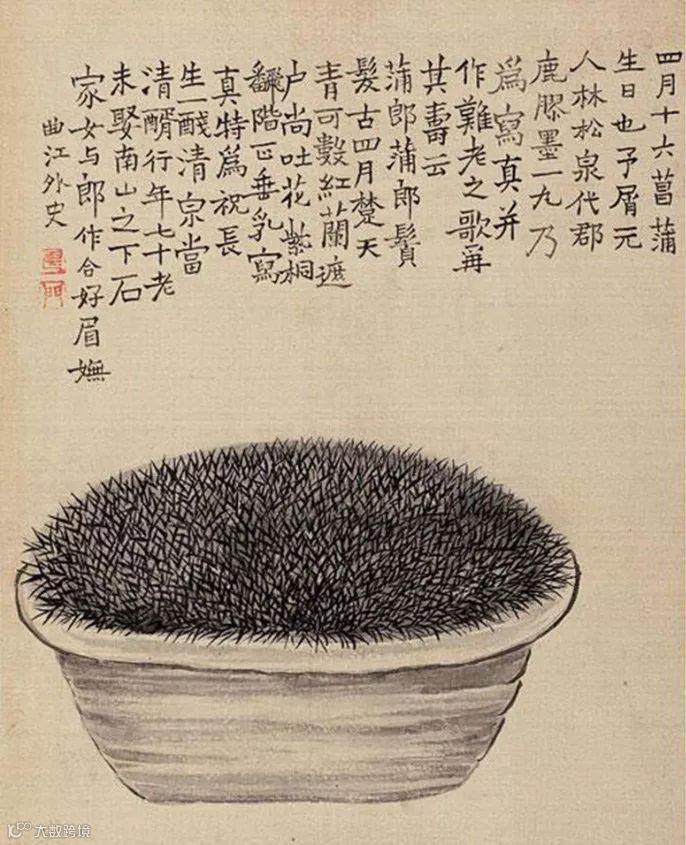 四月十六菖蒲
生日也予屑元
人林松泉代郡
鹿膠墨一丸乃
爲寫真并
作難老之歌再
其壽云
蒲郎蒲郎鬢
髮古四月楚天
青可數紅蘭遮
户尚吐花紫桐
翻階正垂乳寫
真特爲祝長
生一醆清泉當
清醑行年七十老
未娶南山之下石
家女与郎作合好眉嫵
曲江外史
大数跨境